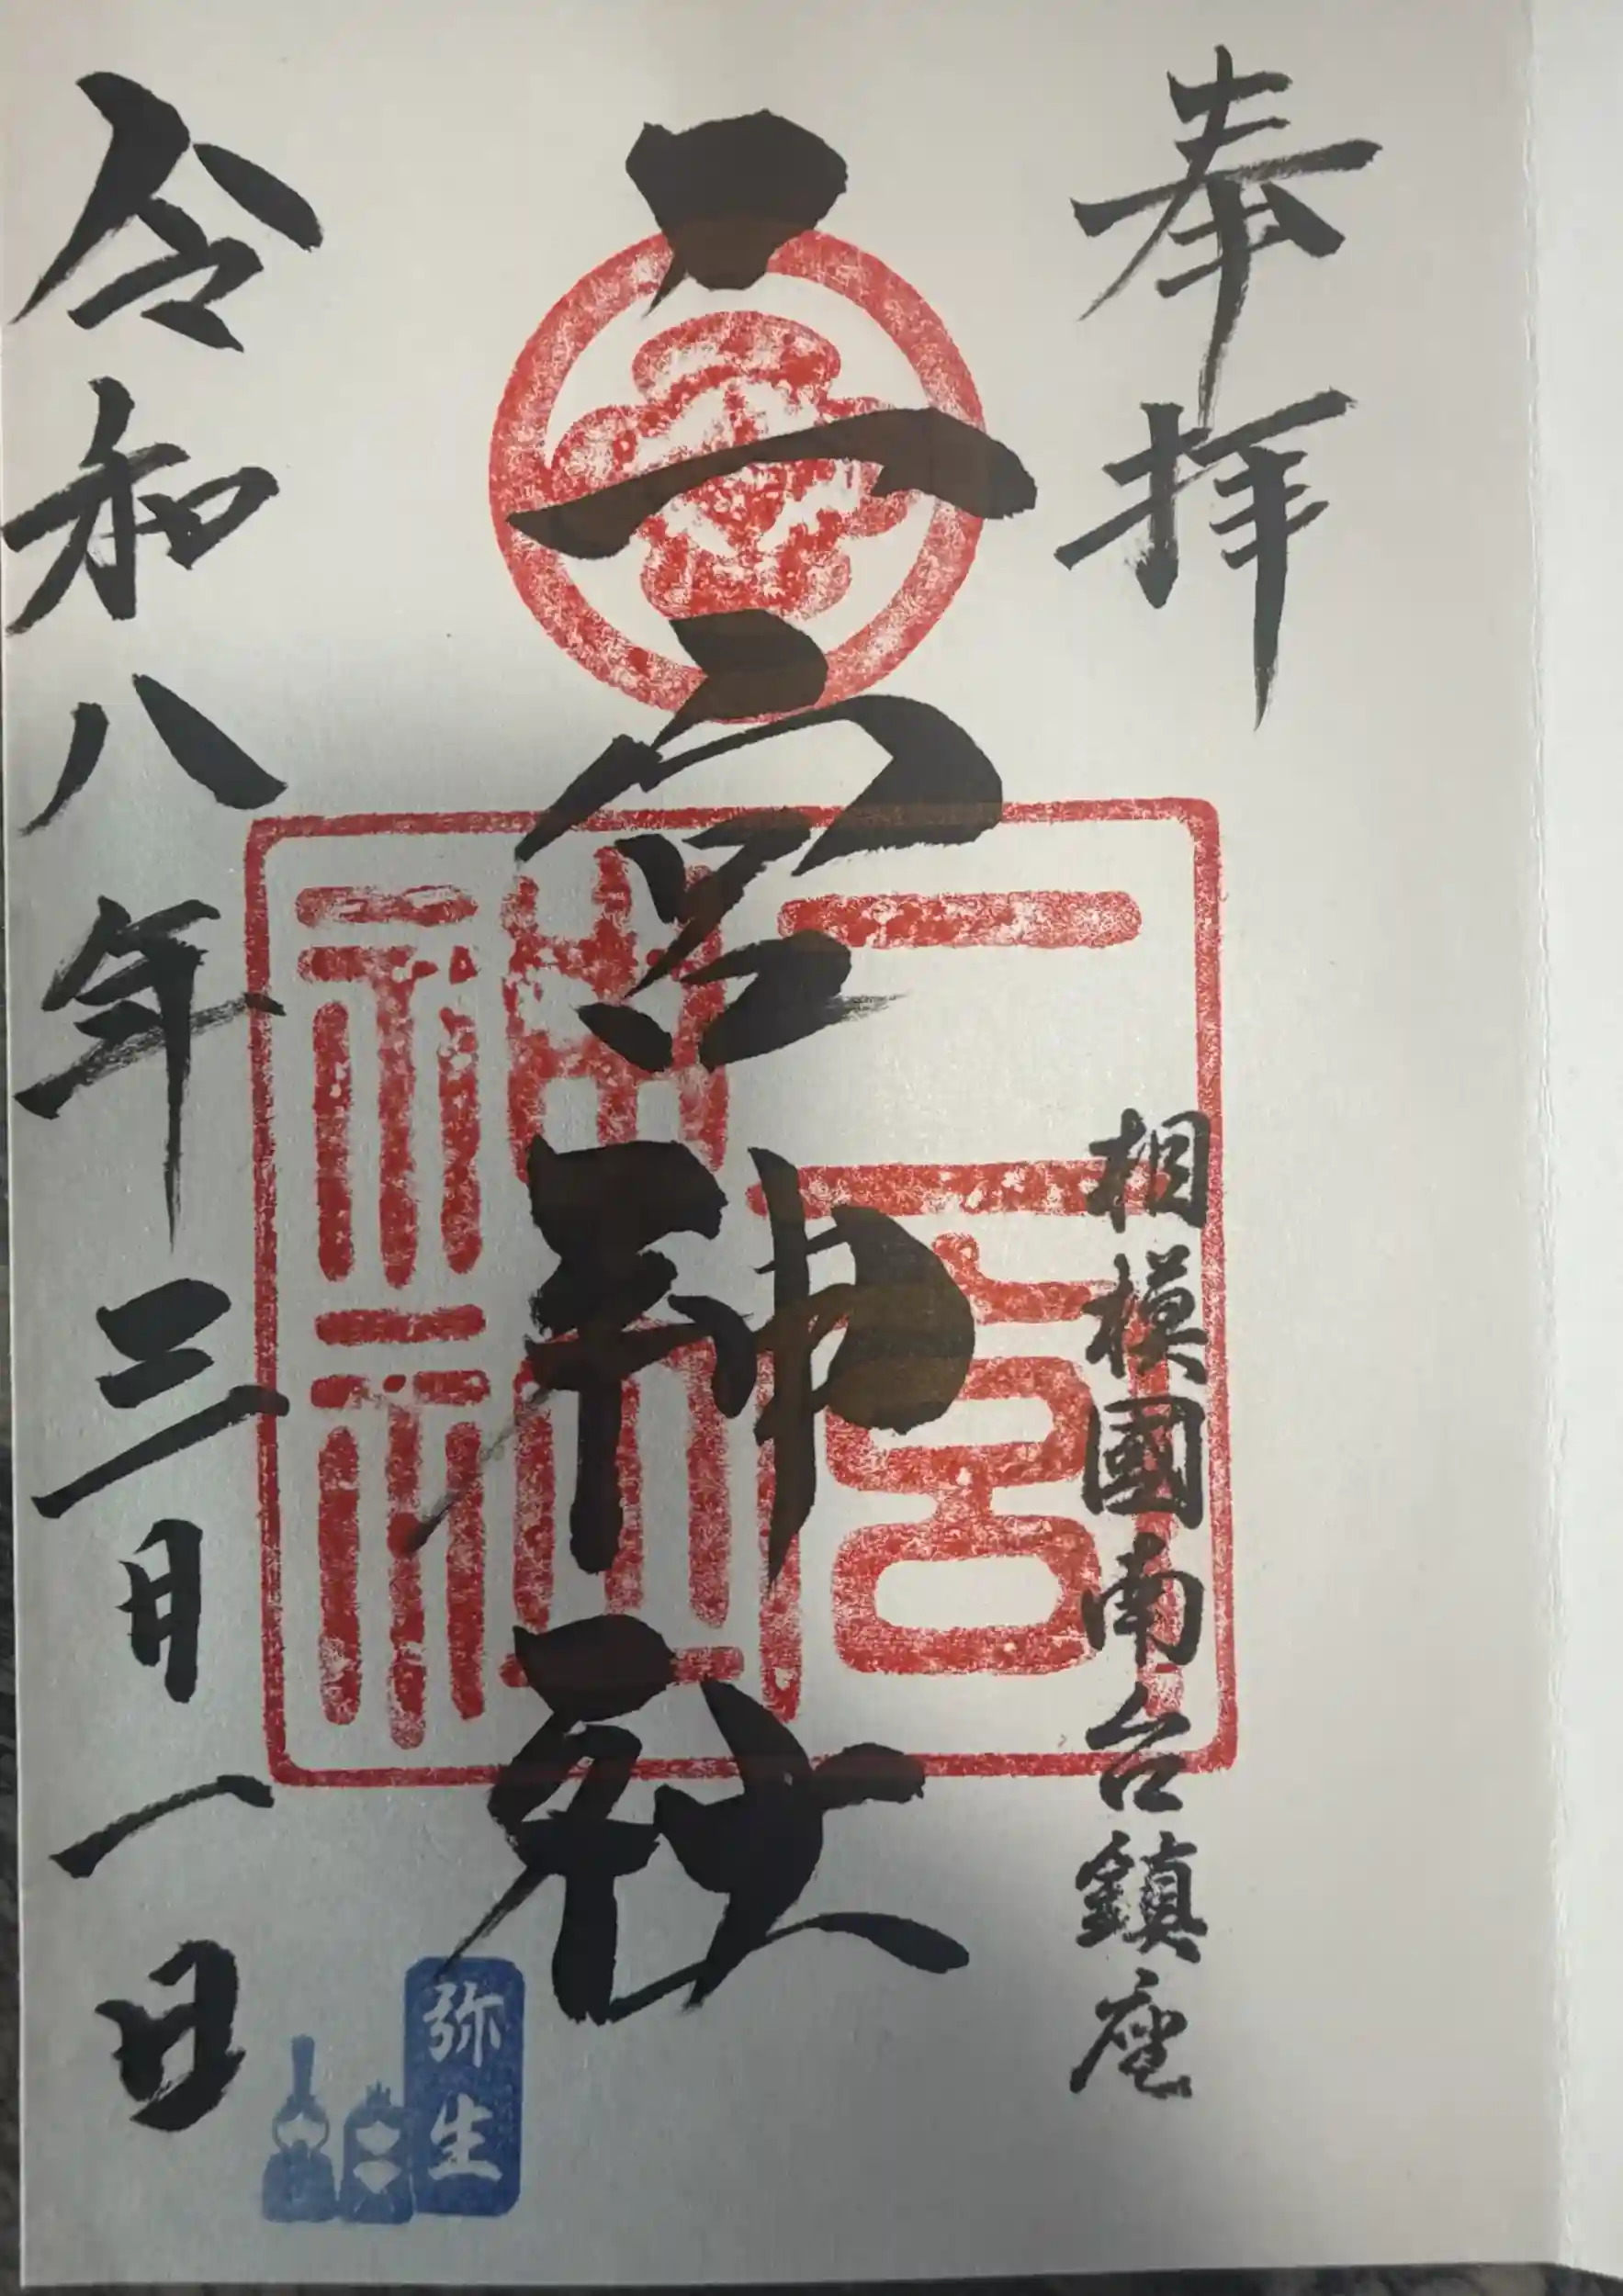 奉拝
相模國南台鎮座
二宮神社
二宮神社
令和八年三月一日
弥生